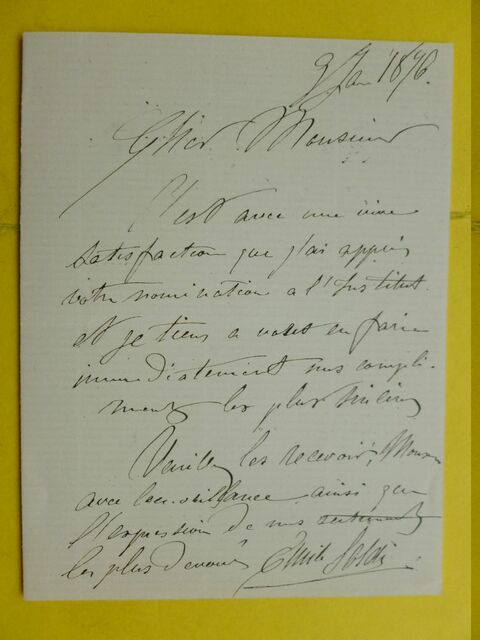 9 Jan 1876.
Cher Monsieur
C'est avec une vive
satisfaction que j'ai appris
votre nomination a l'Institut.
et je tiens a vous en faire
immediatement mes compli-
ments les plus sincères
Veuillez les recevoir, Monsieur
avec bienveillance ainsi que
l'expression de mes sentiments
les plus devoués Emile Soldi